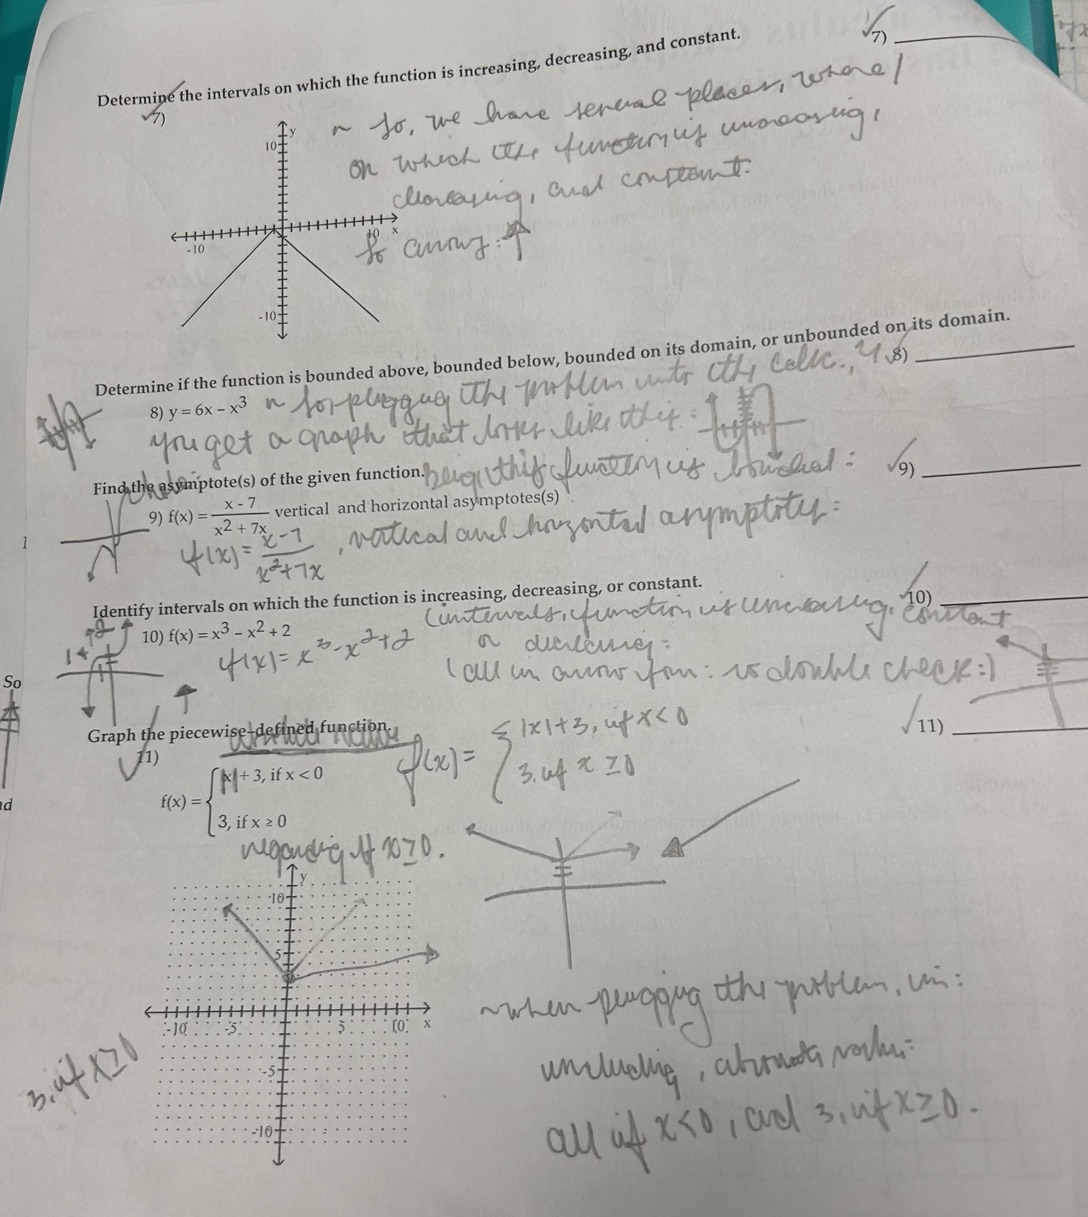 Determine the intervals on which the function is increasing, decreasing, and constant.
7)
7)
so, we have several places, where /
on which the function is increasing,
decreasing, and constant.
y
10
-10
10
x
-10
Determine if the function is bounded above, bounded below, bounded on its domain, or unbounded on its domain.
8)
8) y = 6x - x³
plugging the problem into the calc.,
you get a graph that looks like this:
Find the asymptote(s) of the given function.
this function is
9)
9) f(x) = x - 7 / x² + 7x vertical and horizontal asymptotes(s)
f(x) = x-7 / x²+7x , vertical and horizontal asymptotes:
1
Identify intervals on which the function is increasing, decreasing, or constant.
10)
(intervals, function is increasing, constant
10) f(x) = x³ - x² + 2
f(x) = x³-x²+2
or decreasing:
(all in arrow form: to double check:)
So
Graph the piecewise-defined function.
11)
11)
f(x) = { |x| + 3, if x < 0
3, if x ≥ 0
f(x) = { |x|+3, if x<0
3, if x ≥0
nd
if x≥0.
y
10
5
-10
-5
5
10
x
-5
-10
3, if x≥0
when plugging the problem, in:
including,
all if x<0, and 3, if x≥0.